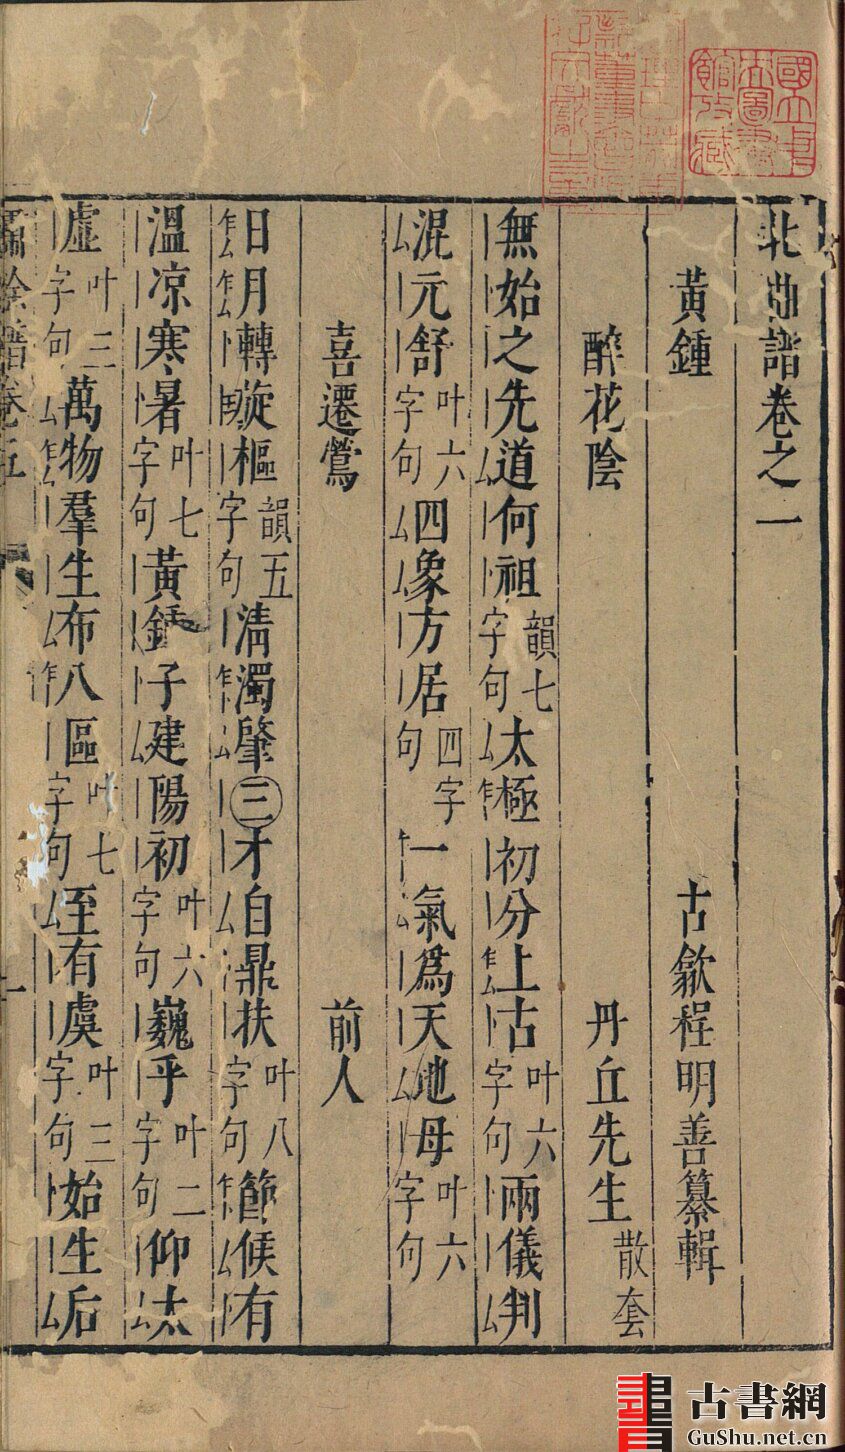 北曲譜卷之一
黃鍾 古歙程明善纂輯
醉花陰 丹丘先生散套
無始之先道何祖韻七字句太極初分上古叶六字句兩儀判
混元舒叶六字句四象方居四字句一氣爲天地母叶六字句
喜遷鶯 前人
日月轉璇樞韻五字句清濁肇三才自鼎扶叶八字句節候有
溫凉寒暑叶七字句黃鍾子建陽初叶六字句巍乎叶二字句仰太
虛叶三字句萬物羣生布八區叶七字句至有虞叶三字句始生后
嘯餘譜卷五 一
國立中央圖書館收藏
古書網
GuShu.net.cn